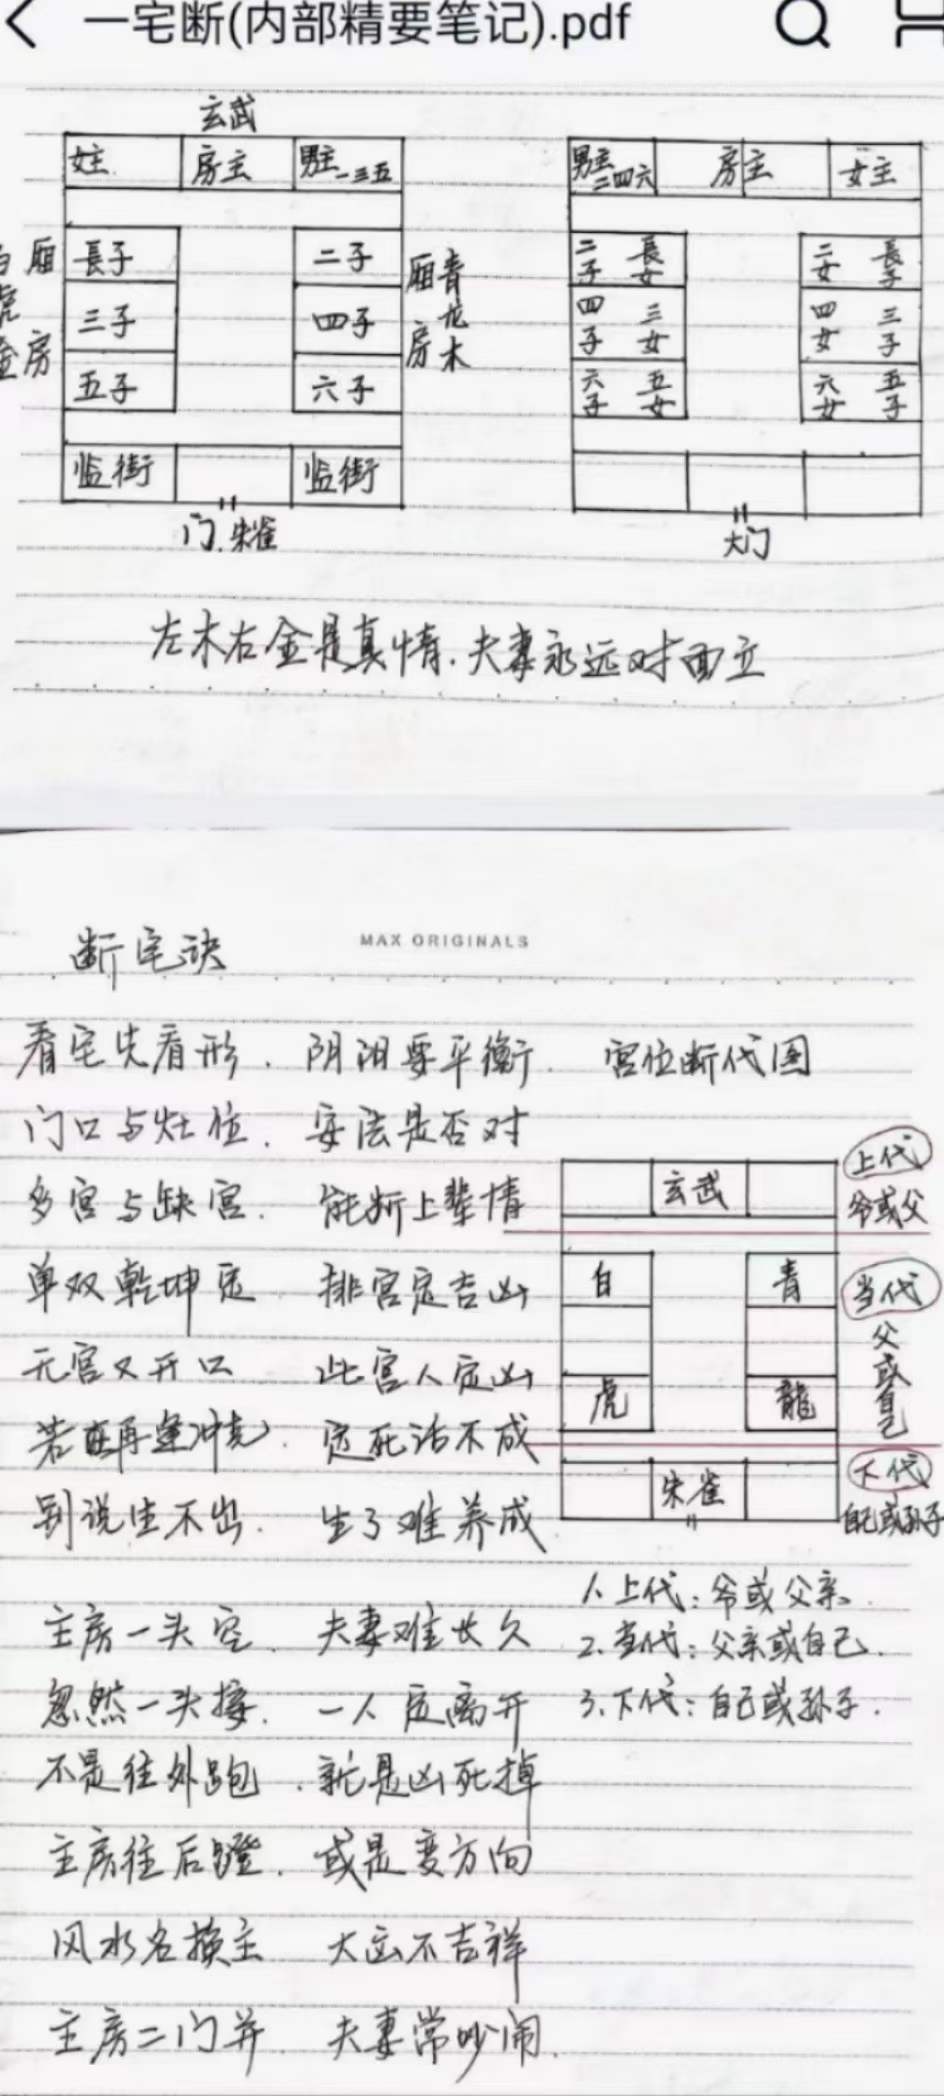 一宅断(内部精要笔记).pdf
玄武
女主 房主 男主一三五
男主二四六 房主 女主
厢房
長子 二子
三子 四子
五子 六子
厢房 青龙木
二子 長女 二女 長子
四子 三女 四女 三子
六子 五女 六女 五子
监街 监街
门.朱雀
大门
左木右金是真情.夫妻永远对面立
MAX ORIGINALS
断宅诀
看宅先看形. 阴阳要平衡. 宫位断代图
门口与灶位. 安法是否对
多宫与缺宫. 能断上辈情
单双乾坤定 排宫定吉凶
无宫又开口 此宫人定凶
若在再逢冲克. 定死活不成
别说生不出. 生了难养成
玄武
上代
爷或父
白 青
当代
父或自己
虎 龍
下代
朱雀
自己或孙子
1.上代:爷或父亲.
2.当代:父亲或自己.
3.下代:自己或孙子.
主房一头空. 夫妻难长久
忽然一头接. 一人定离开
不是往外跑. 就是凶死掉
主房往后蹬. 或是变方向
风水名换主 大凶不吉祥
主房二门并 夫妻常吵闹.